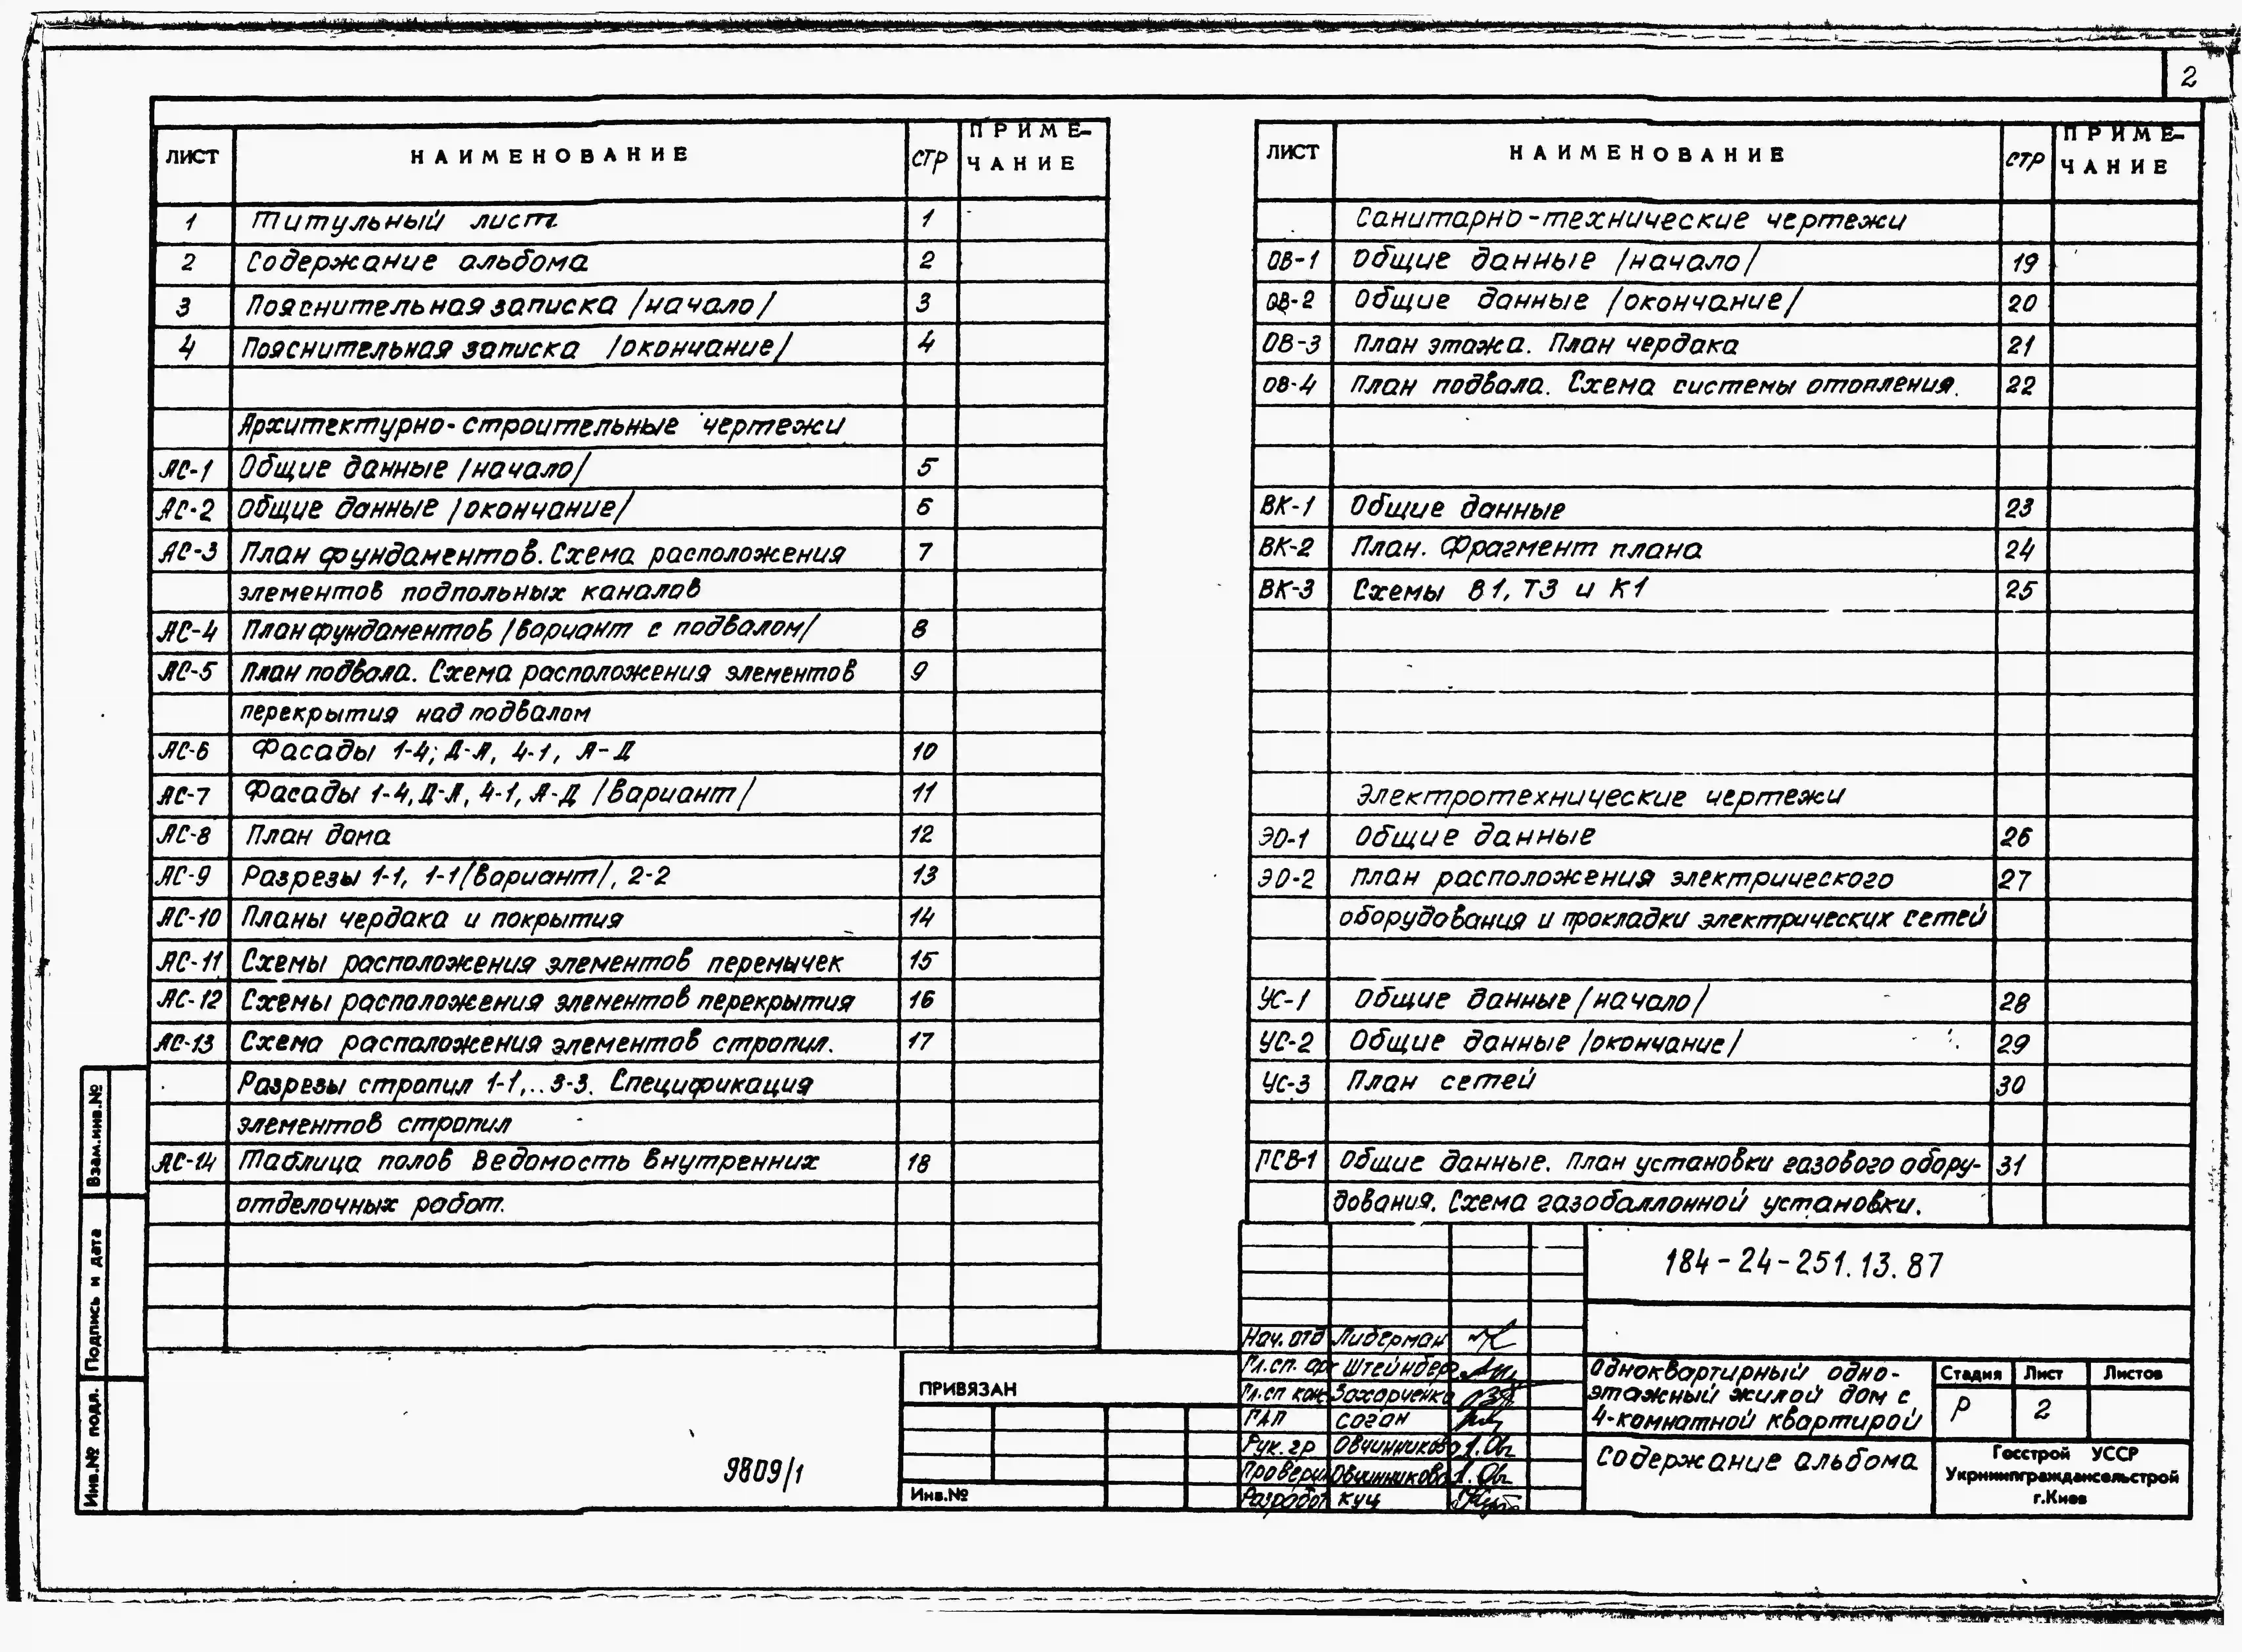 2
ЛИСТ НАИМЕНОВАНИЕ СТР ПРИМЕ-
ЧАНИЕ
1 Титульный лист 1
2 Содержание альбома 2
3 Пояснительная записка /начало/ 3
4 Пояснительная записка /окончание/ 4
Архитектурно-строительные чертежи
АС-1 Общие данные /начало/ 5
АС-2 Общие данные /окончание/ 6
АС-3 План фундаментов. Схема расположения 7
элементов подпольных каналов
АС-4 План фундаментов /вариант с подвалом/ 8
АС-5 План подвала. Схема расположения элементов 9
перекрытия над подвалом
АС-6 Фасады 1-4; Д-А, 4-1, А-Д 10
АС-7 Фасады 1-4, Д-А, 4-1, А-Д /вариант/ 11
АС-8 План дома 12
АС-9 Разрезы 1-1, 1-1/вариант/, 2-2 13
АС-10 Планы чердака и покрытия 14
АС-11 Схемы расположения элементов перемычек 15
АС-12 Схемы расположения элементов перекрытия 16
АС-13 Схема расположения элементов стропил. 17
Разрезы стропил 1-1,..3-3. Спецификация
элементов стропил
АС-14 Таблица полов Ведомость внутренних 18
отделочных работ.
ЛИСТ НАИМЕНОВАНИЕ СТР ПРИМЕ-
ЧАНИЕ
Санитарно-технические чертежи
ОВ-1 Общие данные /начало/ 19
ОВ-2 Общие данные /окончание/ 20
ОВ-3 План этажа. План чердака 21
ОВ-4 План подвала. Схема системы отопления. 22
ВК-1 Общие данные 23
ВК-2 План. Фрагмент плана 24
ВК-3 Схемы В1, Т3 и К1 25
Электротехнические чертежи
ЭО-1 Общие данные 26
ЭО-2 План расположения электрического 27
оборудования и прокладки электрических сетей
УС-1 Общие данные /начало/ 28
УС-2 Общие данные /окончание/ 29
УС-3 План сетей 30
ГСВ-1 Общие данные. План установки газового обору- 31
дования. Схема газобаллонной установки.
184-24-251.13.87
Нач. отд Либерман
Гл.сп. арх Штейнберг
Гл.сп кон Захарченко
ГАП Соган
Рук. гр Овчинникова
Провери Овчинникова
Разработ Куц
Одноквартирный одно-
этажный жилой дом с
4-комнатной квартирой
Содержание альбома
Стадия Лист Листов
Р 2
Госстрой УССР
Укрниипграждансельстрой
г.Киев
ПРИВЯЗАН
Инв.№
9809/1
Взам.инв.№
Подпись и дата
Инв.№ подл.